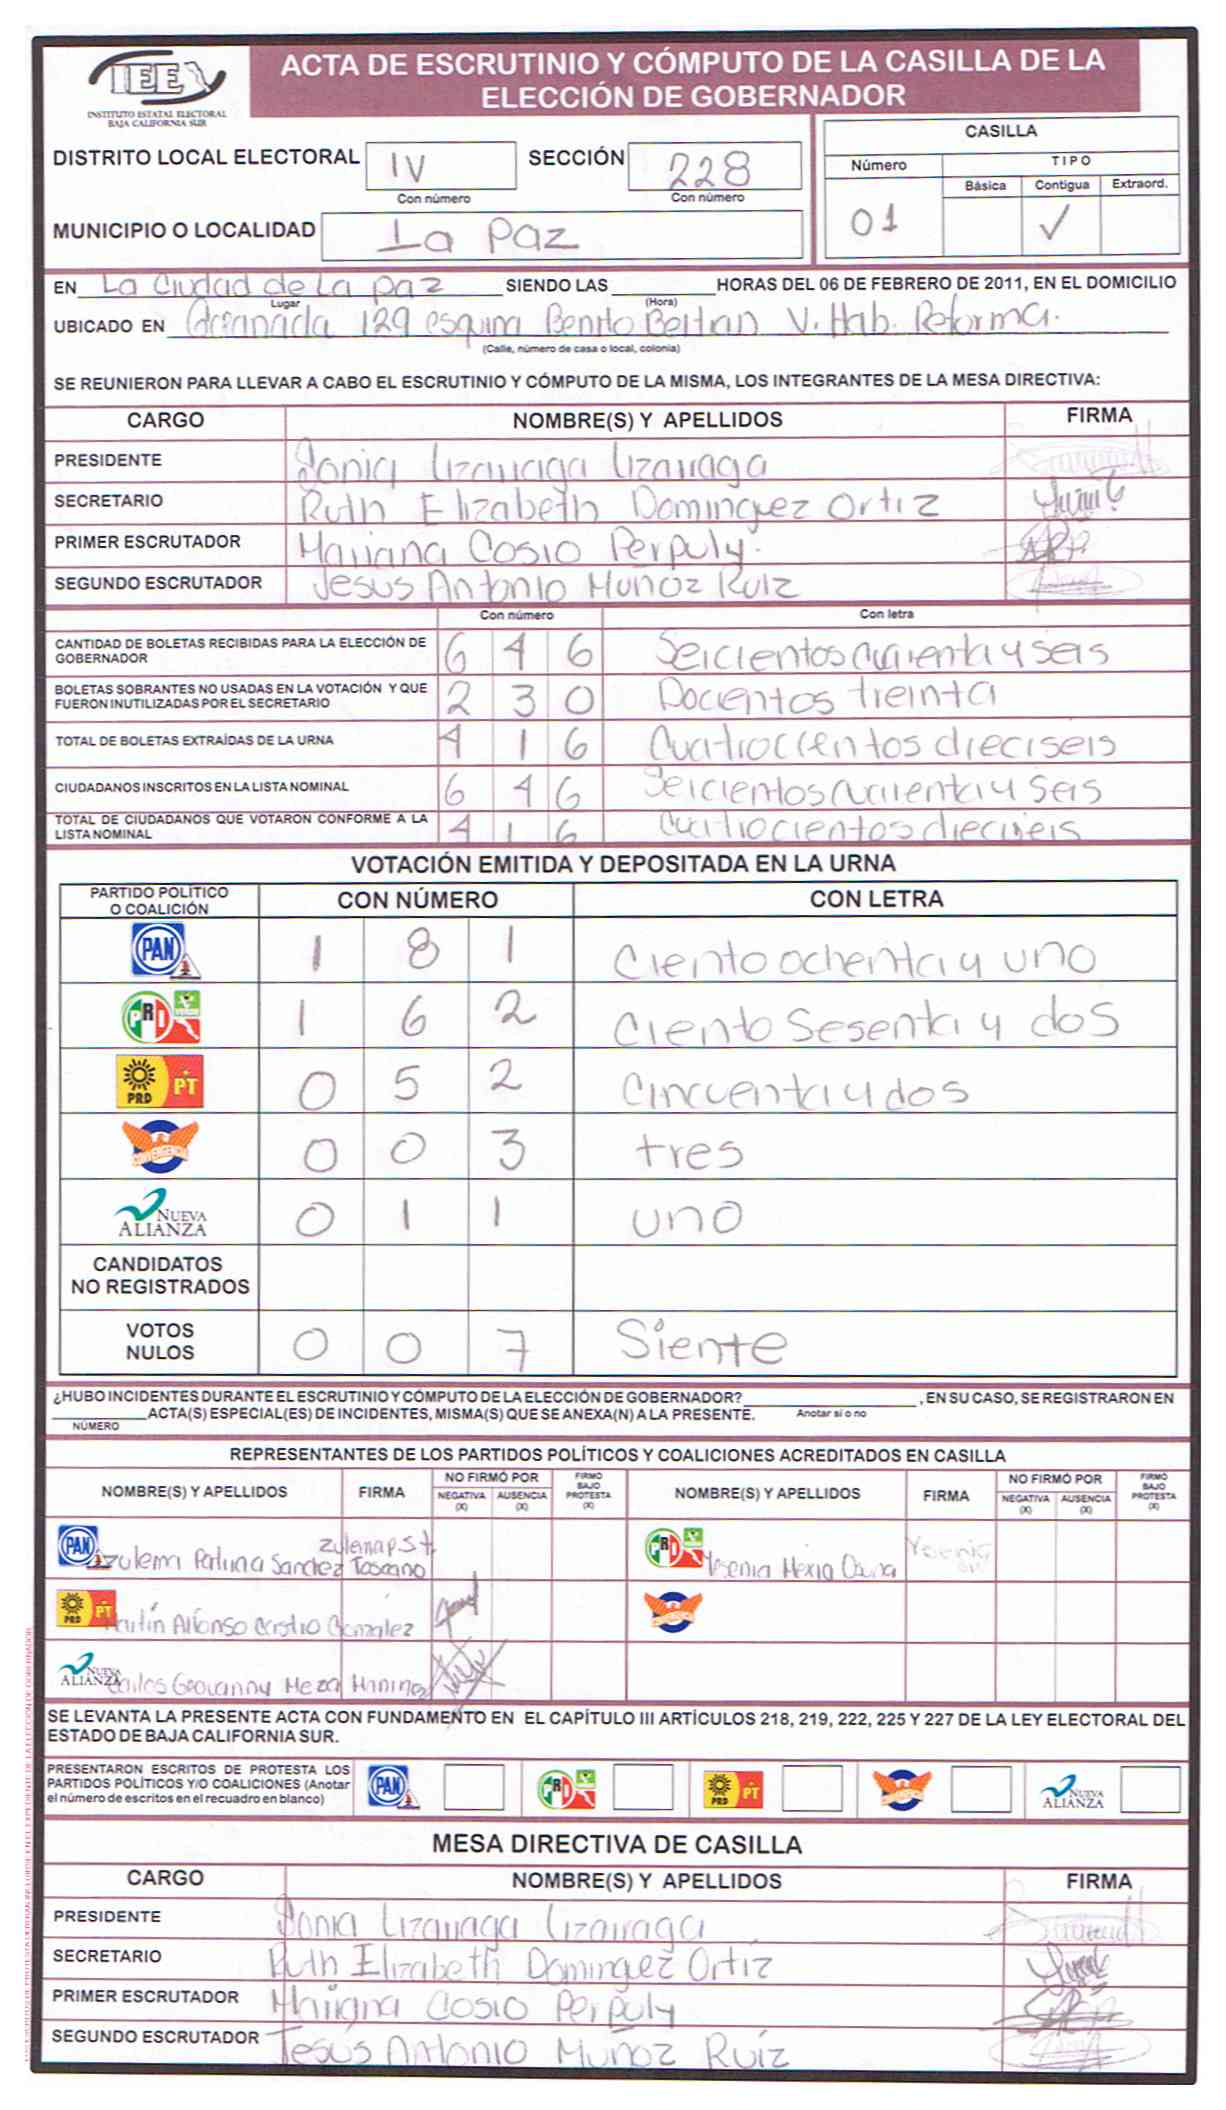 IEE
INSTITUTO ESTATAL ELECTORAL
BAJA CALIFORNIA SUR
ACTA DE ESCRUTINIO Y CÓMPUTO DE LA CASILLA DE LA
ELECCIÓN DE GOBERNADOR
DISTRITO LOCAL ELECTORAL IV SECCIÓN 228
Con número Con número
MUNICIPIO O LOCALIDAD La Paz
CASILLA
Número TIPO
Básica Contigua Extraord.
01 ✓
EN La Ciudad de La paz SIENDO LAS HORAS DEL 06 DE FEBRERO DE 2011, EN EL DOMICILIO
Lugar (Hora)
UBICADO EN Granada 129 esquina Benito Beltran V. Hab. Reforma.
(Calle, número de casa o local, colonia)
SE REUNIERON PARA LLEVAR A CABO EL ESCRUTINIO Y CÓMPUTO DE LA MISMA, LOS INTEGRANTES DE LA MESA DIRECTIVA:
CARGO NOMBRE(S) Y APELLIDOS FIRMA
PRESIDENTE Sonia Lizarraga Lizarraga
SECRETARIO Ruth Elizabeth Dominguez Ortiz
PRIMER ESCRUTADOR Mariana Cosio Perpuly.
SEGUNDO ESCRUTADOR Jesus Antonio Muñoz Ruiz
Con número Con letra
CANTIDAD DE BOLETAS RECIBIDAS PARA LA ELECCIÓN DE
GOBERNADOR 6 4 6 Seicientos cuarenta y seis
BOLETAS SOBRANTES NO USADAS EN LA VOTACIÓN Y QUE
FUERON INUTILIZADAS POR EL SECRETARIO 2 3 0 Docientos treinta
TOTAL DE BOLETAS EXTRAÍDAS DE LA URNA 4 1 6 Cuatrocientos dieciseis
CIUDADANOS INSCRITOS EN LA LISTA NOMINAL 6 4 6 Seicientos cuarenta y seis
TOTAL DE CIUDADANOS QUE VOTARON CONFORME A LA
LISTA NOMINAL 4 1 6 Cuatrocientos dieciseis
VOTACIÓN EMITIDA Y DEPOSITADA EN LA URNA
PARTIDO POLÍTICO
O COALICIÓN CON NÚMERO CON LETRA
PAN 1 8 1 Ciento ochenta y uno
PRI 1 6 2 Ciento Sesenta y dos
PRD PT 0 5 2 Cincuenta y dos
CONVERGENCIA 0 0 3 tres
NUEVA ALIANZA 0 1 1 uno
CANDIDATOS
NO REGISTRADOS
VOTOS
NULOS 0 0 7 Siente
¿HUBO INCIDENTES DURANTE EL ESCRUTINIO Y CÓMPUTO DE LA ELECCIÓN DE GOBERNADOR? , EN SU CASO, SE REGISTRARON EN
ACTA(S) ESPECIAL(ES) DE INCIDENTES, MISMA(S) QUE SE ANEXA(N) A LA PRESENTE. Anotar sí o no
NÚMERO
REPRESENTANTES DE LOS PARTIDOS POLÍTICOS Y COALICIONES ACREDITADOS EN CASILLA
NOMBRE(S) Y APELLIDOS FIRMA NO FIRMÓ POR NEGATIVA (X) AUSENCIA (X) FIRMÓ BAJO PROTESTA (X) NOMBRE(S) Y APELLIDOS FIRMA NO FIRMÓ POR NEGATIVA (X) AUSENCIA (X) FIRMÓ BAJO PROTESTA (X)
PAN Sanchez Toscano PRI
PRD PT Martín Alfonso González
NUEVA ALIANZA Carlos Geovanny Meza
SE LEVANTA LA PRESENTE ACTA CON FUNDAMENTO EN EL CAPÍTULO III ARTÍCULOS 218, 219, 222, 225 Y 227 DE LA LEY ELECTORAL DEL
ESTADO DE BAJA CALIFORNIA SUR.
PRESENTARON ESCRITOS DE PROTESTA LOS
PARTIDOS POLÍTICOS Y/O COALICIONES (Anotar
el número de escritos en el recuadro en blanco) PAN PRI PRD PT NUEVA ALIANZA
MESA DIRECTIVA DE CASILLA
CARGO NOMBRE(S) Y APELLIDOS FIRMA
PRESIDENTE Sonia Lizarraga Lizarraga
SECRETARIO Ruth Elizabeth Dominguez Ortiz
PRIMER ESCRUTADOR Mariana Cosio Perpuly
SEGUNDO ESCRUTADOR Jesús Antonio Muñoz Ruíz